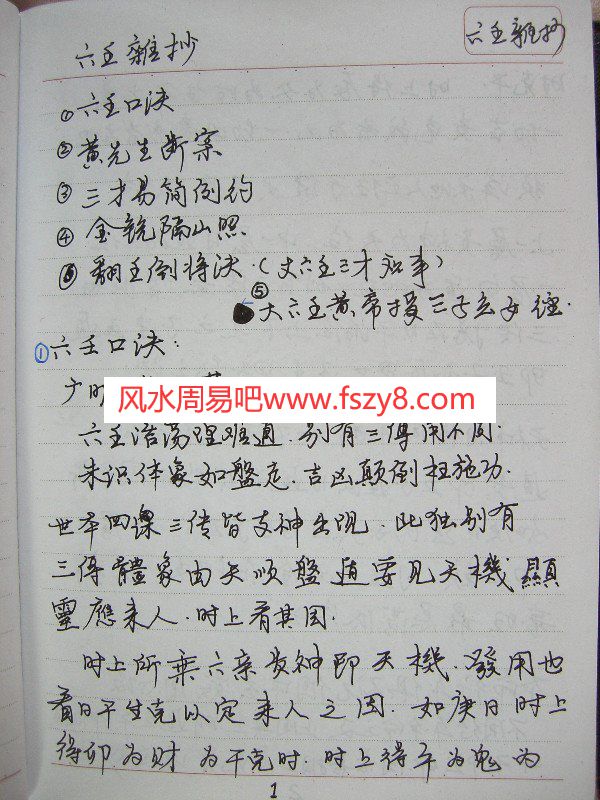 六壬雜抄
六壬雜抄
①六壬口决
②黄先生断案
③三才易简例约
④金鏡隔山照
⑥翻壬倒将决（大六壬三才知事）
⑤大六壬黄帝授三子玄女經.
①六壬口决：
风水周易吧www.fszy8.com
六壬浩荡理难通.别有三傳用不同.
未识体象如盤走.吉凶颠倒枉施功.
世本四課三传皆支神出现.此独别有
三傳體象由天顺盤遁要见天機顯
靈應来人.时上看其因.
时上所乘六亲贵神即天機.發用也
看日干生克以定来人之因.如庚日时上
得卯为财 为干克时.时上得午为鬼为
1